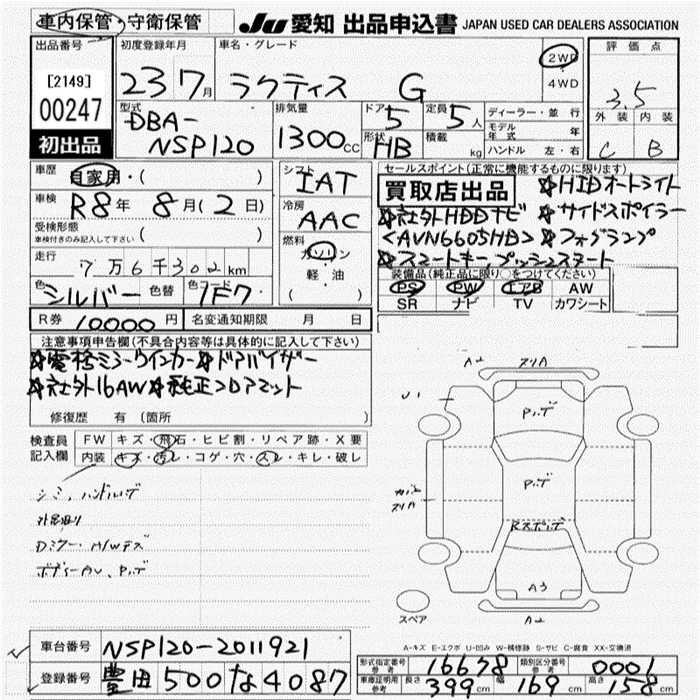 車内保管・守衛保管
JU 愛知 出品申込書 JAPAN USED CAR DEALERS ASSOCIATION
出品番号
[2149]
00247
初出品
初度登録年月
23 7月
車名・グレード
ラクティス G
2WD
4WD
評価点
3.5
外装 内装
C B
型式
DBA-
NSP120
排気量
1300cc
ドア 5
形状 HB
定員 5人
積載 kg
ディーラー・並行
モデル年式 年
ハンドル 左・右
車歴 自家用・( )
車検 R8年 8月(2日)
受検形態
車検付きのみ記入して下さい ( )
走行 7万6千302km
色 シルバー 色替 色コード 1F7
シフト
IAT
冷房
AAC
燃料
ガソリン
軽・油
( )
R券 10000円 名変通知期限 月 日
セールスポイント(正常に機能するものに限ります)
買取店出品 ☆HIDオートライト
☆社外HDDナビ ☆サイドスポイラー
<AVN6605HD> ☆フォグランプ
☆スマートキー プッシュスタート
装備品(純正品に限り○をつけてください)
PS PW エアB AW
SR ナビ TV カワシート
注意事項申告欄(不具合内容等は具体的に記入して下さい)
☆電格ミラーウインカー☆ドアバイザー
☆社外16AW☆純正フロアマット
修復歴 有(箇所 )
検査員記入欄
FW キズ・飛石・ヒビ割・リペア跡・X要
内装 キズ・汚レ・コゲ・穴・スレ・キレ・破レ
シミ、ハンドル
Dミラー・A/Wキズ
A2 スリA
U1
スリA
A3
A2
スペア
A-キズ E-エクボ U-凹み W-補修跡 S-サビ C-腐食 XX-交換済
車台番号 NSP120-2011921
登録番号 豊田500な4087
型式指定番号 参考 16678 類別区分番号 参考 0001
車庫証明用 参考 長さ 399cm 幅 169cm 高さ 158cm